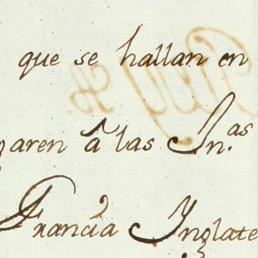 que se hallan en
garen â las Jn.as
Francia Jnglate